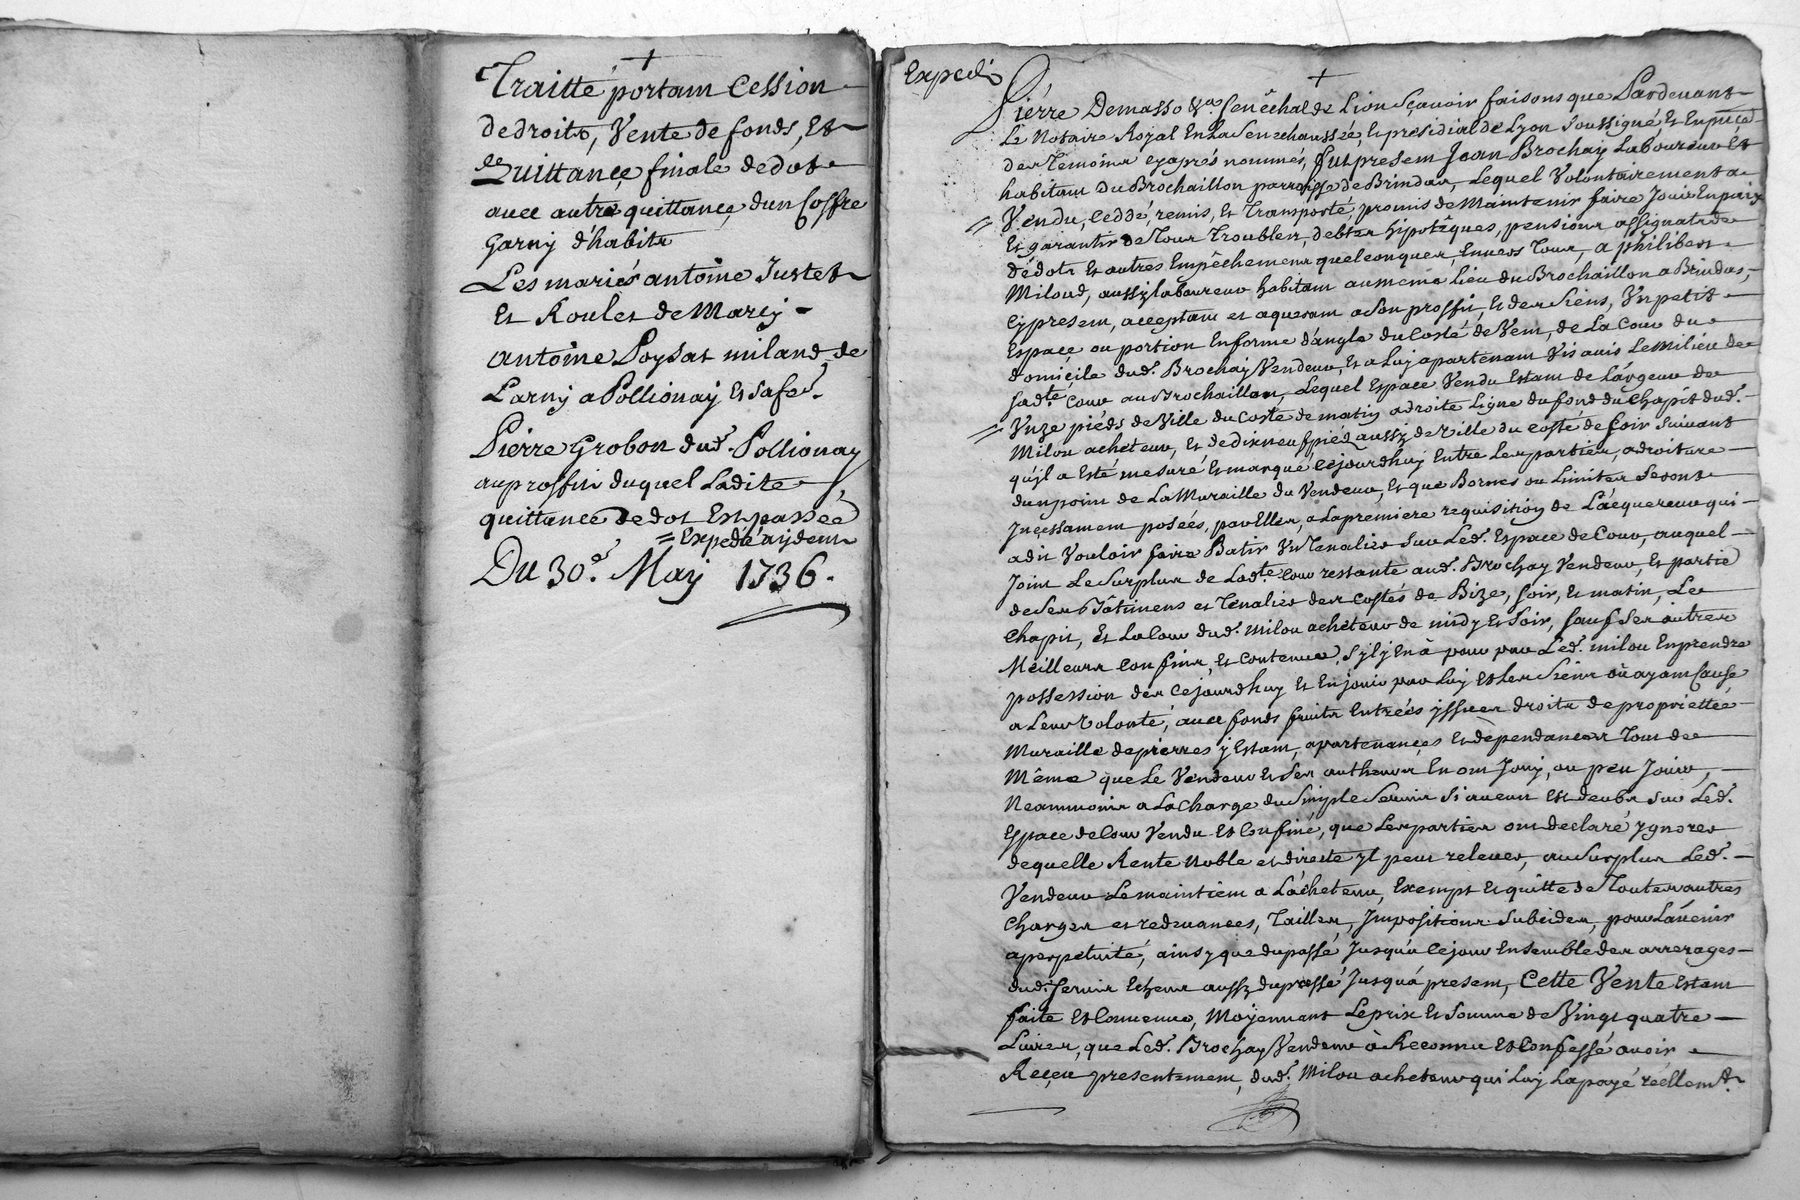 Traitté portant Cession
de droits, Vente de fonds, Et
Quittance finale de dot
avec autre quittance d'un Coffre
garny d'habits
Les mariés antoine Justet
Et Roulet de Marcy
antoine Poysat miland de
Larny a Pollionay Et safe.
Pierre Grobon dud. Pollionay
au proffit duquel Ladite
quittance de dot Est passée
= Expedié aydem
Du 30e. May 1736.
Expedié
Pierre Demasso &a. senéchal de Lion sçavoir faisons que Pardevant
Le Notaire Royal En La Senechaussée, Et presidial de Lyon soussigné, Et En pñce
des Témoins cyaprés nommés, fut present Jean Brochay Laboureur Et
habitant du Brochaillon parroisse de Brindas, Lequel Volontairement a
Vendu, Ceddé, remis, Et Transporté, promis de Maintenir faire Jouir En paix
Et garantir de Tous Troubles, debtes hipotêques, pensions assignats de
dédots Et autres Empêchemens quelconques, Envers Tous, a philibert
Miloud, aussy laboureur habitant au même Lieu du Brochaillon a Brindas,
Cy present, acceptant et aquerant a son proffit, Et des Siens, Un petit
Espace ou portion En forme d'angle du Costé de Vent, de La Cour du
domicile dud. Brochay Vendeur, Et a Luy apartenant Vis avis Le Milieu de
sadte. Cour au Brochaillon, Lequel Espace Vendu Estant de Largeur de
Unze piéds de Ville du Coste de matin a droite Ligne du fond du Chapit dud.
Milou acheteur, Et de dixneuf piéz aussy de Ville du costé de soir suivant
qu'jl a Esté mesuré Et marqué Cejourdhuy Entre Les parties, a droiture
d'un point de La Muraille du Vendeur, Et que Bornes ou Limites seront
Jnçessament posées, par Elles, a La premiere requisition de L'acquereur qui
a dit Vouloir faire Batir Un Tenalier sur Led. Espace de Cour, auquel
Joint Le Surplus de Ladte. Cour restante aud. Brochay Vendeur, Et partie
de ses Bâtimens et Tenalier des costés de Bize, soir, Et matin, Le
Chapit, Et La Cour dud. Milou acheteur de midy Et Soir, sauf ses autres
Meilleurs Confins, Et contenue, s'jl y En à pour par Led. milou En prendre
possession des Cejourdhuy Et En jouir par Luy Et Les Siens où ayant Cause
a Leur Volonté, avec fonds fruits Entrées yssues droits de proprietté
Muraille de pierres y Estant, apartenançes Et dépendances Tout de
Même que Le Vendeur Et Ses autheurs En ont Jouy, ou peu Jouir,
Neammoins a La Charge du Simple Servis si aucun Est deub Sur Led.
Espace de Cour Vendu Et Confiné, que Les parties ont declaré ygnorer
de quelle Rente Noble et directe yl peut relever, au Surplus Led.
Vendeur Le maintient a L'acheteur, Exempt Et quitte de Toutes autres
Charges et redevances, Tailles, Jmpositions Subcides, pour L'avenir
a perpetuité, ainsy que du passé Jusqu'a Cejour Ensemble des arrerages
dud. Servis Echeus aussy du passé Jusquá present, Cette Vente Estant
faite Et Convenue, Moyennant Le prix Et Somme de Vingt quatre
Livres, que Led. Brochay Vendeur à Reconnu Et Confessé avoir
Reçeu presentement, dud. Milou acheteur qui Luy L'a payé réellemt.